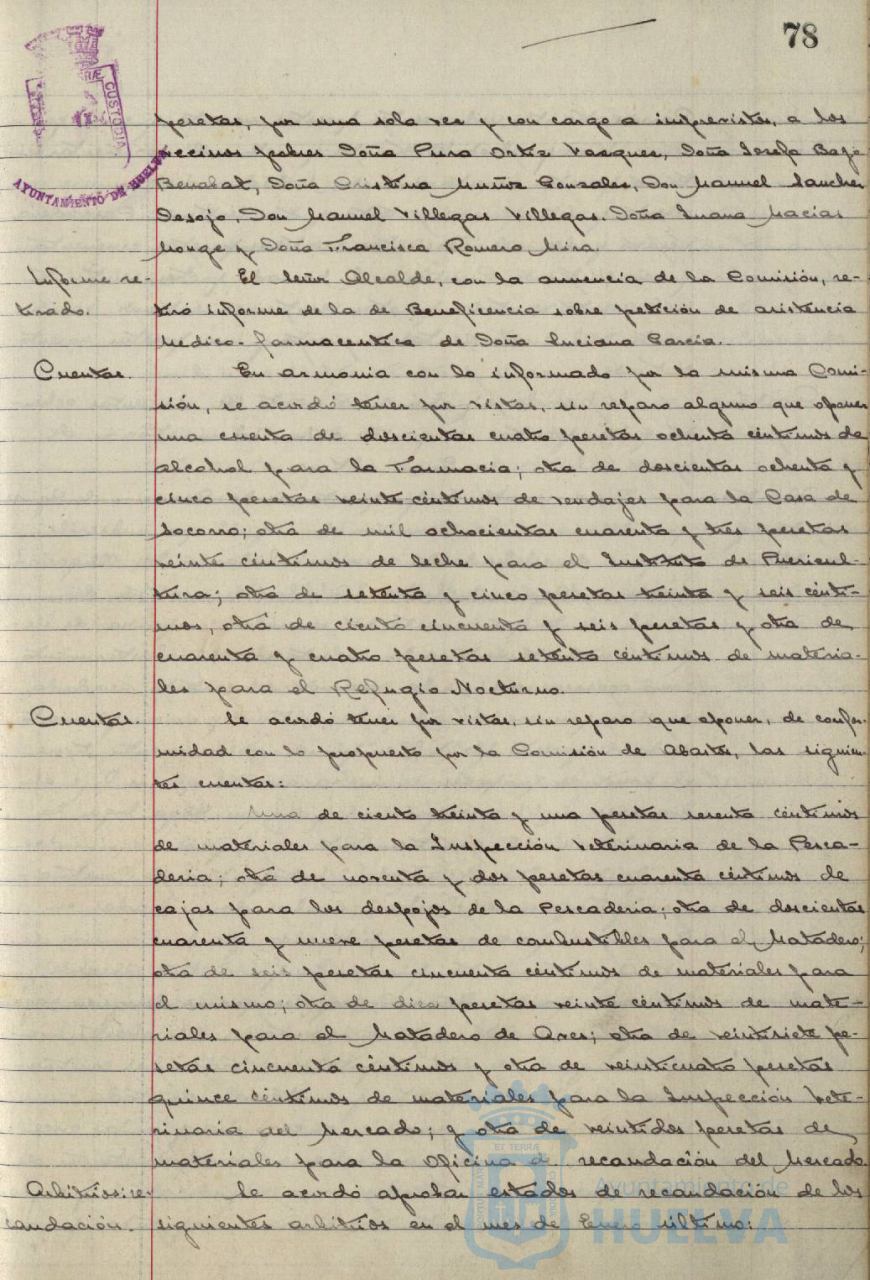 78
CUSTODIA
AYUNTAMIENTO DE HUELVA
pesetas, por una sola vez y con cargo a imprevistos, a los
vecinos pobres Doña Pura Ortiz Vazquez, Doña Josefa Bago
Benabat, Doña Cristina Muñiz Gonzales, Don Manuel Sanchez
Desojo, Don Manuel Villegas Villegas. Doña Juana Macias
Monge y Doña Francisca Romero Mira.
Informe re-
tirado.
El Señor Alcalde, con la anuencia de la Comisión, re-
tiró informe de la de Beneficencia sobre petición de asistencia
Medico-farmaceutica de Doña Luciana Garcia.
Cuentas.
En armonia con lo informado por la misma Comi-
sión, se acordó tener por vistas, sin reparo alguno que oponer
una cuenta de doscientas cuatro pesetas ochenta céntimos de
alcohol para la Farmacia; otra de doscientas ochenta y
cinco pesetas veinte céntimos de vendajes para la Casa de
Socorro; otra de mil ochocientas cuarenta y tres pesetas
veinte céntimos de leche para el Instituto de Puericul-
tura; otra de setenta y cinco pesetas treinta y seis cénti-
mos, otra de ciento cincuenta y seis pesetas y otra de
cuarenta y cuatro pesetas setenta céntimos de materia-
les para el Refugio Nocturno.
Cuentas.
Se acordó tener por vistas, sin reparo que oponer, de confor-
midad con lo propuesto por la Comisión de Abastos, las siguien-
tes cuentas:
Una de ciento treinta y una pesetas sesenta céntimos
de materiales para la Inspección Veterinaria de la Pesca-
deria; otra de noventa y dos pesetas cuarenta céntimos de
cajas para los despojos de la Pescaderia; otra de doscientas
cuarenta y nueve pesetas de combustibles para el Matadero;
otra de seis pesetas cincuenta céntimos de materiales para
el mismo; otra de diez pesetas veinte céntimos de mate-
riales para el Matadero de Aves; otra de veintisiete pe-
setas cincuenta céntimos y otra de veinticuatro pesetas
quince céntimos de materiales para la Inspección Vete-
rinaria del Mercado; y otra de veintidos pesetas de
materiales para la Oficina de recaudación del Mercado.
Arbitrios: re-
caudación.
Se acordó aprobar estados de recaudación de los
siguientes arbitrios en el mes de Enero último:
Ayuntamiento de
HUELVA